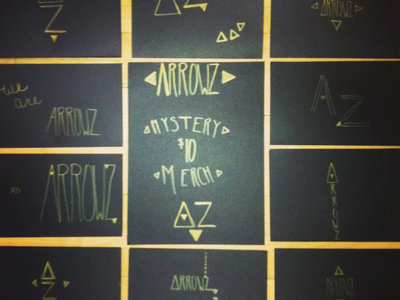 Z
ARROWZ
We
are
ARROWZ
ARROWZ
MYSTERY
$10
MERCH
AZ
AZ
ARROWZ
ARROWZ
A
Z
ARROWZ
ARROWZ